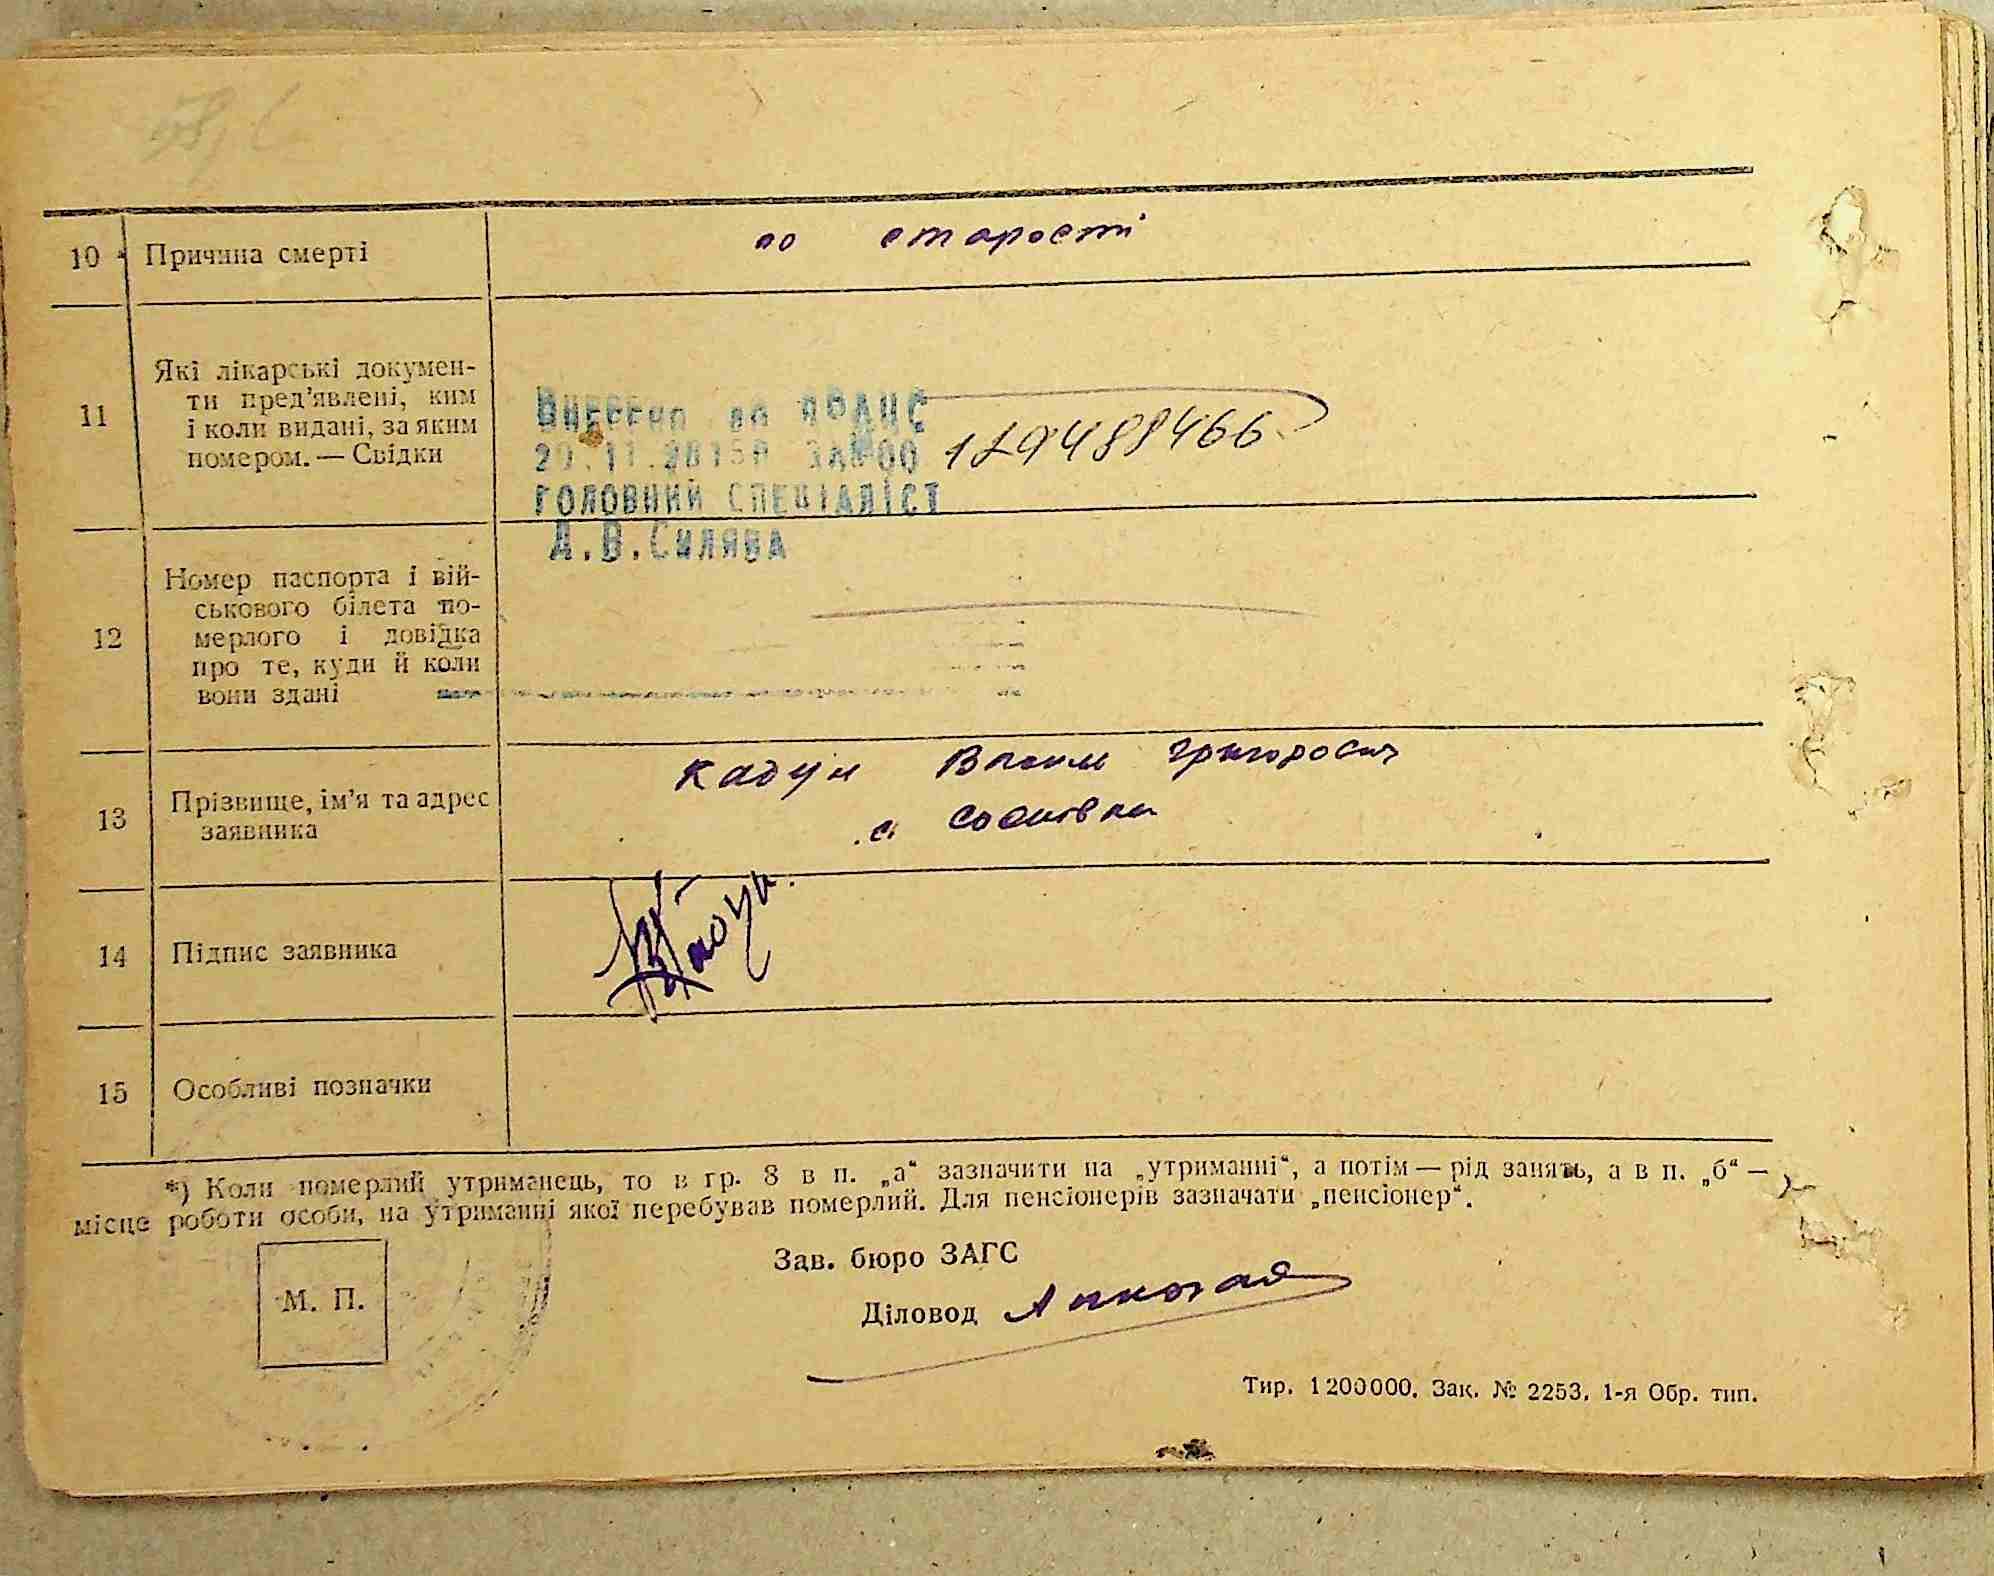 10 Причина смерті по старості
11 Які лікарські докумен-
ти пред'явлені, ким
і коли видані, за яким
помером. — Свідки
Внесено до ДРАЦС
за №00 179488466
ГОЛОВНИЙ СПЕЦІАЛІСТ
А.В.Силява
12 Номер паспорта і вій-
ськового білета по-
мерлого і довідка
про те, куди й коли
вони здані
13 Прізвище, ім'я та адрес
заявника
Кадун Василь Григорович
с. Соснівка
14 Підпис заявника Кадун
15 Особливі позначки
*) Коли померлий утриманець, то в гр. 8 в п. „а“ зазначити на „утриманні“, а потім — рід занять, а в п. „б“ —
місце роботи особи, на утриманні якої перебував померлий. Для пенсіонерів зазначати „пенсіонер“.
М. П.
Зав. бюро ЗАГС
Діловод
Тир. 1200000. Зак. № 2253. 1-я Обр. тип.